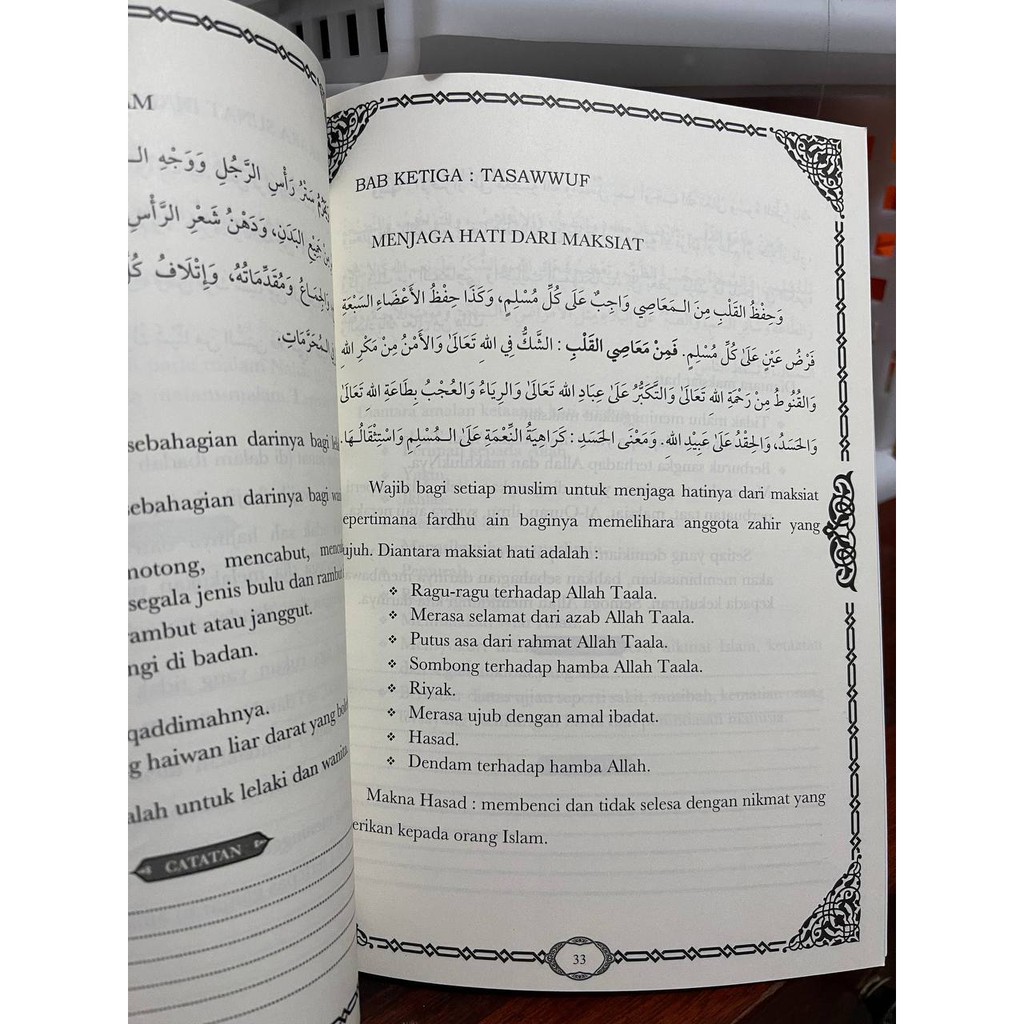 AM
سَتْرُ رَأْسِ الرَّجُلِ وَوَجْهِ
البَدَنِ، وَدَهْنُ شَعْرِ الرَّأْسِ
وَالجِمَاعُ وَمُقَدِّمَاتُهُ، وَإِتْلَافُ
الـمُحَرَّمَاتِ.
sebahagian darinya bagi
sebahagian darinya bagi
notong, mencabut,
segala jenis bulu dan rambut
rambut atau janggut.
ngi di badan.
qaddimahnya.
g haiwan liar darat yang
alah untuk lelaki dan wanita.
CATATAN
BAB KETIGA : TASAWWUF
MENJAGA HATI DARI MAKSIAT
وَحِفْظُ القَلْبِ مِنَ الـمَعَاصِي وَاجِبٌ عَلَى كُلِّ مُسْلِمٍ، وَكَذَا حِفْظُ الأَعْضَاءِ السَبْعَةِ
فَرْضُ عَيْنٍ عَلَى كُلِّ مُسْلِمٍ. فَمِنْ مَعَاصِي القَلْبِ : الشَّكُّ فِي اللهِ تَعَالَى وَالأَمْنُ مِنْ مَكْرِ اللهِ
وَالقُنُوطُ مِنْ رَحْمَةِ اللهِ تَعَالَى وَالتَّكَبُّرُ عَلَى عِبَادِ اللهِ تَعَالَى وَالرِيَاءُ وَالعُجْبُ بِطَاعَةِ اللهِ تَعَالَى
وَالحَسَدُ، وَالحِقْدُ عَلَى عَبِيْدِ اللهِ. وَمَعْنَى الحَسَدِ : كَرَاهِيَةُ النِّعْمَةِ عَلَى الـمُسْلِمِ وَاسْتِثْقَالُـهَا.
Wajib bagi setiap muslim untuk menjaga hatinya dari maksiat
epertimana fardhu ain baginya memelihara anggota zahir yang
ujuh. Diantara maksiat hati adalah :
❖ Ragu-ragu terhadap Allah Taala.
❖ Merasa selamat dari azab Allah Taala.
❖ Putus asa dari rahmat Allah Taala.
❖ Sombong terhadap hamba Allah Taala.
❖ Riyak.
❖ Merasa ujub dengan amal ibadat.
❖ Hasad.
❖ Dendam terhadap hamba Allah.
Makna Hasad : membenci dan tidak selesa dengan nikmat yang
erikan kepada orang Islam.
33